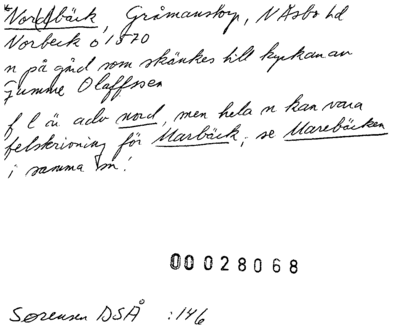 Nordbäck, Gråmanstorp, N Åsbo hd
Norbeck ö 1570
n på gård som skänkes till kyrkan av
Jumme Olaffssen
f l är adv nord, men hela n kan vara
felskrivning för Marbäck, se Marebäcken
i samma sn!
00028068
Sørensen DSÅ :146